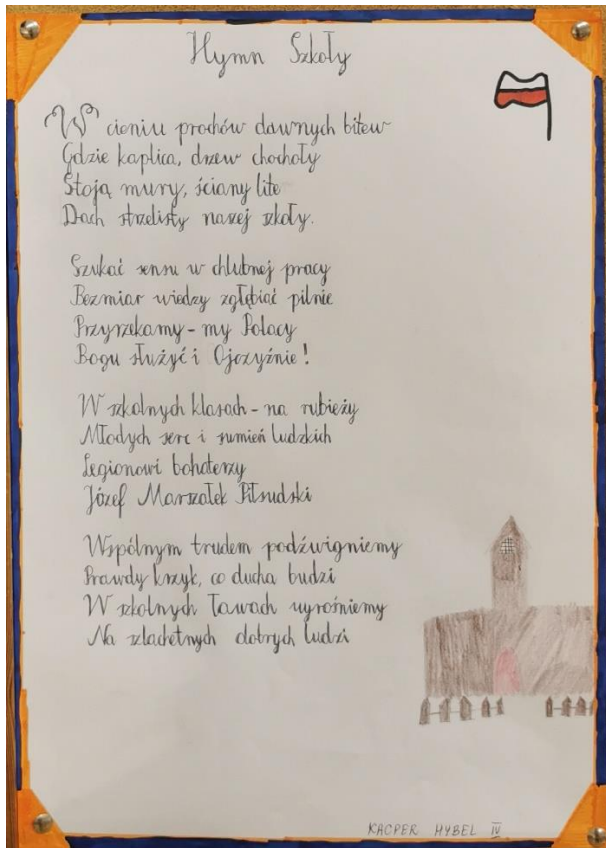 Hymn Szkoły
W cieniu prochów dawnych bitew
Gdzie kaplica, drzew chochoły
Stoją mury, ściany lite
Dach strzelisty naszej szkoły.
Szukać sensu w chlubnej pracy
Bezmiar wiedzy zgłębiać pilnie
Przyrzekamy - my Polacy
Bogu służyć i Ojczyźnie!
W szkolnych klasach - na rubieży
Młodych serc i sumień ludzkich
Legionowi bohaterzy
Józef Marszałek Piłsudski
Wspólnym trudem podźwigniemy
Prawdy krzyk, co ducha budzi
W szkolnych ławach wyrośniemy
Na szlachetnych dobrych ludzi
KACPER HYBEL IV